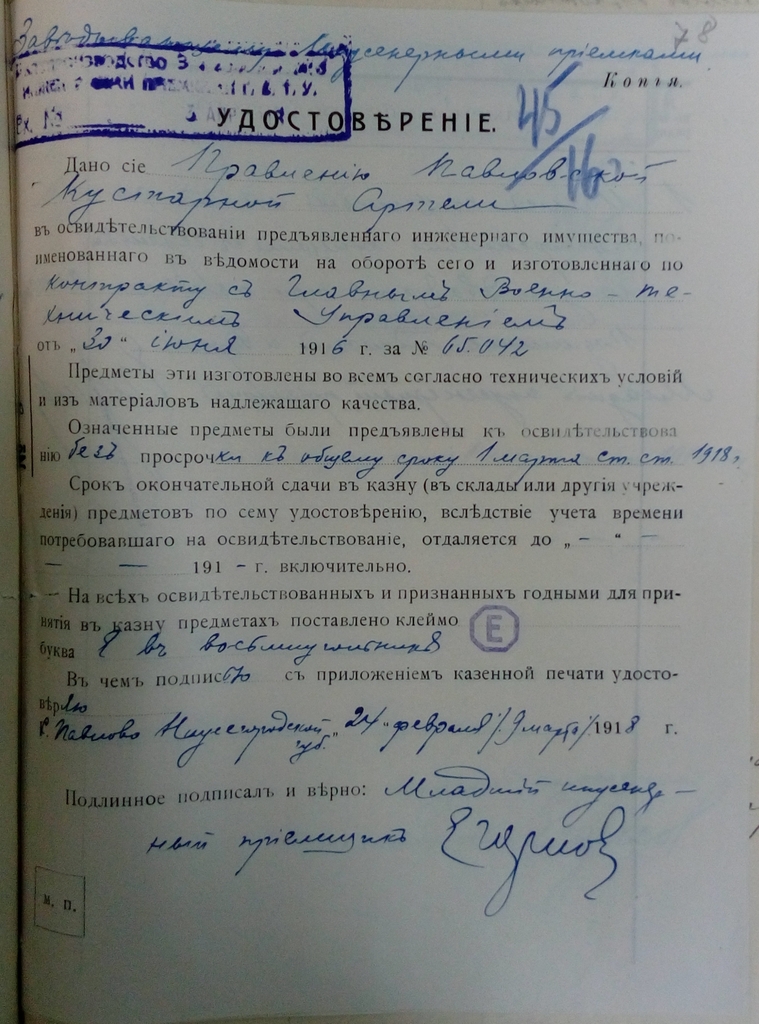 78
Завѣдывающему Инженерными пріемками
Копія.
УДОСТОВѢРЕНІЕ.
45/16
Дано сіе Правленію Павловской
Кустарной Артели
въ освидѣтельствованіи предъявленнаго инженернаго имущества, по-
именованнаго въ вѣдомости на оборотѣ сего и изготовленнаго по
контракту съ Главнымъ Военно-те-
хническимъ Управленіемъ
отъ „30“ іюня 1916 г. за № 65.042
Предметы эти изготовлены во всемъ согласно техническихъ условій
и изъ матеріаловъ надлежащаго качества.
Означенные предметы были предъявлены къ освидѣтельствова
нію безъ просрочки къ общему сроку 1 марта ст. ст. 1918 г.
Срокъ окончательной сдачи въ казну (въ склады или другія учреж-
денія) предметовъ по сему удостовѣренію, вслѣдствіе учета времени
потребовавшаго на освидѣтельствованіе, отдаляется до „ – “ –
– – 191 – г. включительно.
– На всѣхъ освидѣтельствованныхъ и признанныхъ годными для при-
нятія въ казну предметахъ поставлено клеймо E
буква Е въ восьмиугольникѣ
Въ чемъ подписью съ приложеніемъ казенной печати удосто-
вѣряю
г. Павлово Нижегородской губ. „24“ февраля /9 марта/ 1918 г.
Подлинное подписалъ и вѣрно: Младшій инженер-
ный пріемщикъ
М. П.